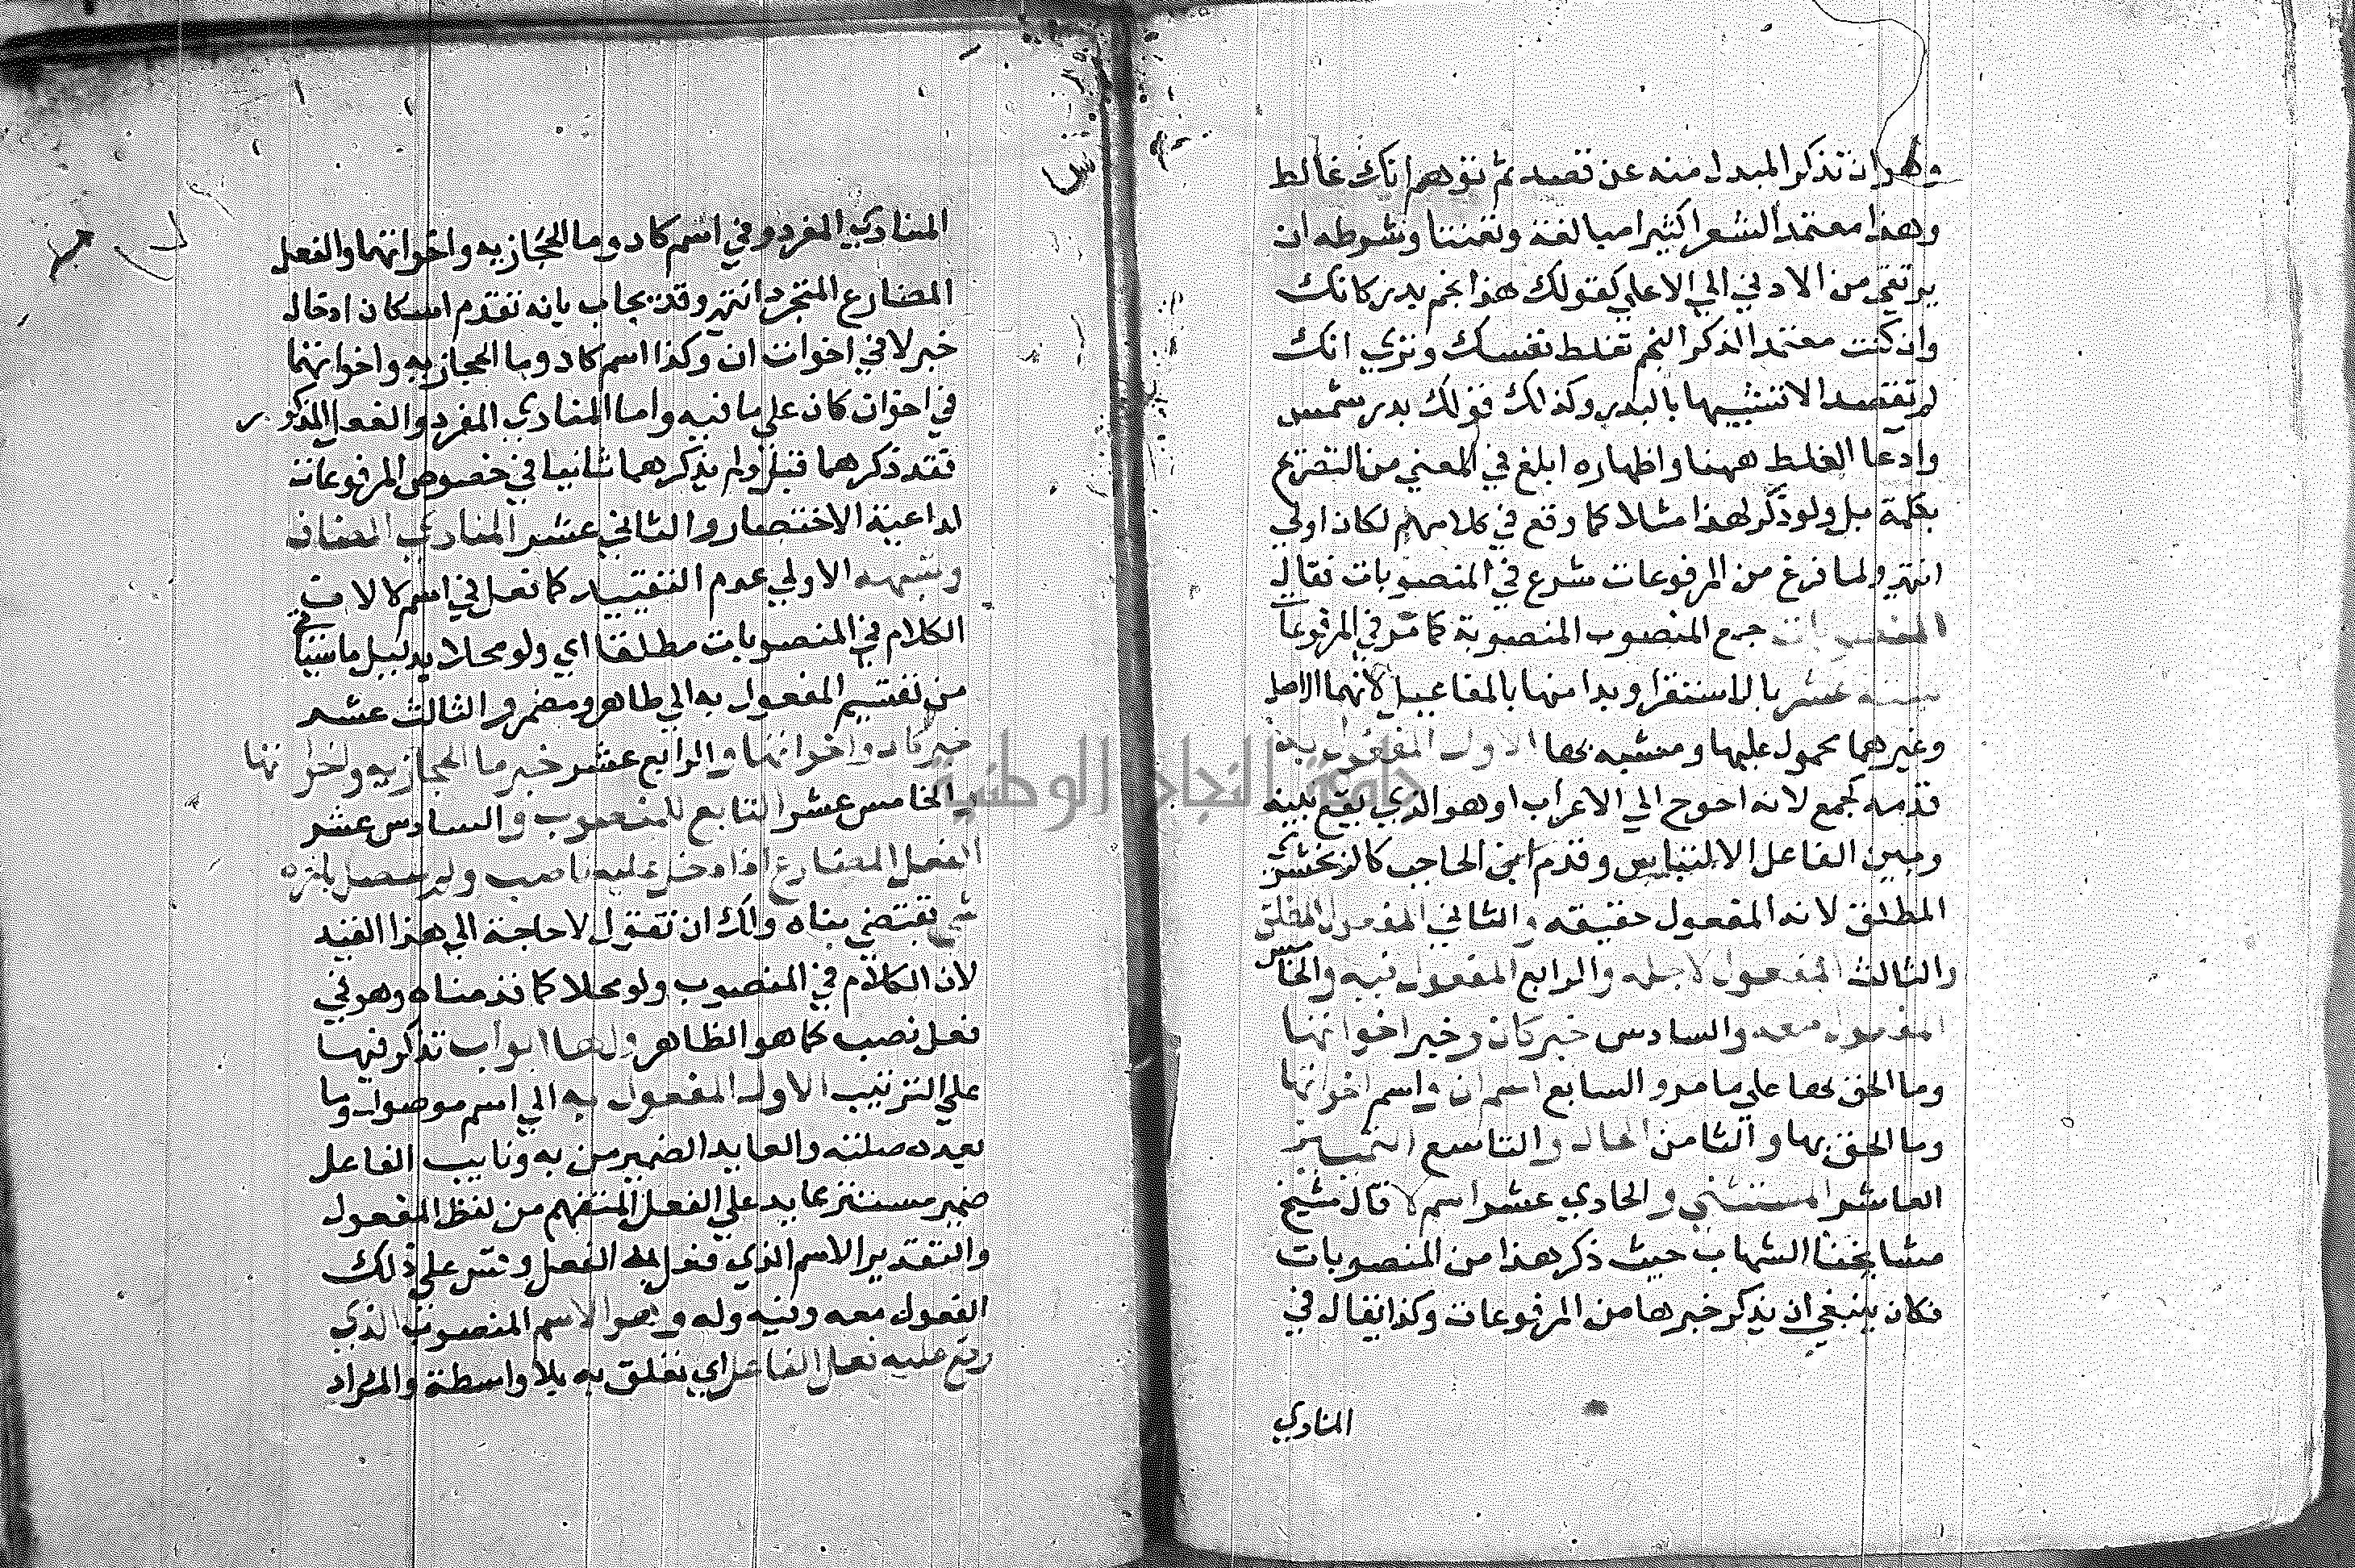 وهو ان تذكر المبدل منه عن قصد ثم توهم انك غالط
وهذا معتمد الشعرا كثيرا مبالغة وتفننا وشرطه ان
يرتقي من الادني الي الاعلي كقولك هذا نجم بدر كانك
وان كنت معتمد الذكر النجم تغلط نفسك وتري انك
لم تقصد الا تشبيهها بالبدر وكذلك قولك بدر شمس
وادعا الغلط ههنا واظهاره ابلغ في المعني من التصريح
بكلمة بل ولو ذكر لهذا مثلا كما وقع في كلامهم لكان اولي
انتهي ولما فرغ من المرفوعات شرع في المنصوبات فقال
المنصوبات جمع المنصوب المنصوبة كما مر في المرفوعات
ستة عشر بالاستقرا وبدا منها بالمفاعيل لانها الاصل
وغيرهما محمول عليها ومشبه بها الاول المفعول به
قدمه كجمع لانه احوج الي الاعراب او هو الذي يقع بينه
وبين الفاعل الالتباس وقدم ابن الحاجب كالزمخشري
المطلق لانه المفعول حقيقه والثاني المفعول المطلق
والثالث المفعول لاجله والرابع المفعول فيه والخامس
المفعول معه والسادس خبر كان وخبر اخواتها
وما الحق بها علي ما مر والسابع اسم ان واسم اخواتها
وما الحق بها والثامن الحال والتاسع التمييز
العاشر المستثني والحادي عشر اسم لا قال شيخ
مشايخنا الشهاب حيث ذكر هذا من المنصوبات
فكان ينبغي ان يذكر خبرها من المرفوعات وكذا يقال في
المنادي
المنادي المفرد وفي اسم كاد وما الحجازيه واخواتهما والفعل
المضارع المتجرد انتهي وقد يجاب بانه تقدم امكان ادخال
خبر لا في اخوات ان وكذا اسم كاد وما الحجازيه واخواتهما
في اخوان كان علي ما فيه واما المنادي المفرد والفعل المذكور
فقد ذكرهما قبل ولم يذكرهما ثانيا في خصوص المرفوعات
لداعية الاختصار والثاني عشر المنادي المضاف
وشبهه الاولي عدم التقييد كما فعل في اسم لا لان
الكلام في المنصوبات مطلقا اي ولو محلا بدليل ما سياتي
من تقسيم المفعول به الي ظاهر ومضمر والثالث عشر
خبر كاد واخواتها والرابع عشر خبر ما الحجازيه واخواتها
والخامس عشر التابع للمنصوب والسادس عشر
الفعل المضارع اذا دخل عليه ناصب ولم يتصل باخره
شي يقتضي بناه ولك ان تقول لا حاجة الي هذا القيد
لان الكلام في المنصوب ولو محلا كما قدمناه وهو في
محل نصب كما هو الظاهر ولها ابواب تذكر فيها
علي الترتيب الاول المفعول به الي اسم موصول وما
بعده صلته والعايد الضمير من به ونايب الفاعل
ضمير مستتر عايد علي الفعل المتفهم من لفظ المفعول
والتقدير الاسم الذي فعل به الفعل وقس علي ذلك
المفعول معه وفيه وله وهو الاسم المنصوب الذي
وقع عليه فعل الفاعل اي تعلق به بلا واسطة والمراد
جامعة النجاح الوطنية